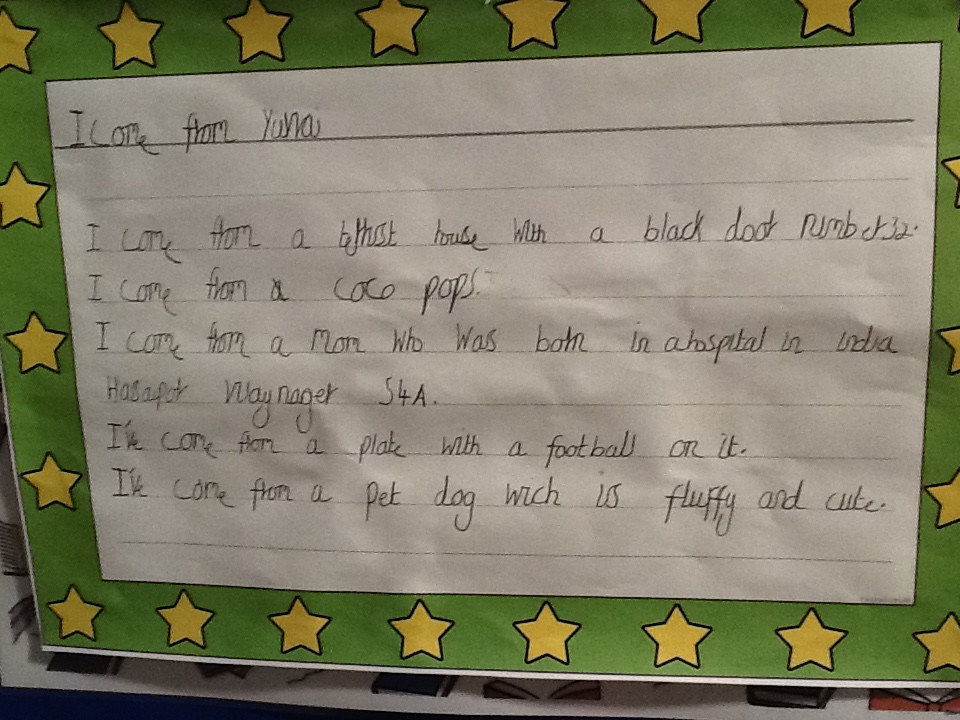 I come from
I come from a house with a black door number 32.
I come from a coco pops.
I come from a mom who was born in a hospital in india
Waynager S4A.
I've come from a plate with a football on it.
I've come from a pet dog wich is fluffy and cute.